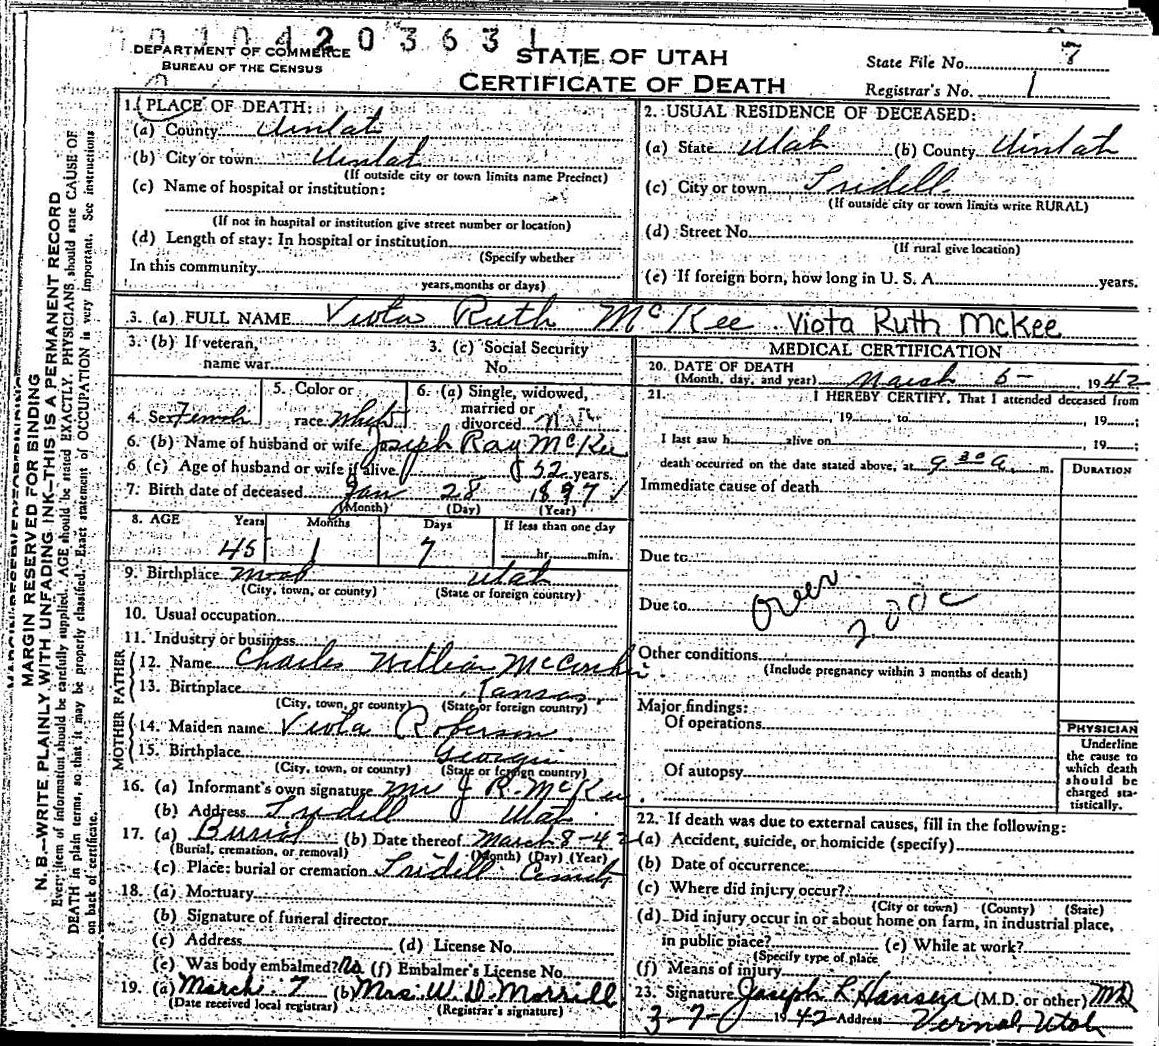 0104203631
DEPARTMENT OF COMMERCE
BUREAU OF THE CENSUS
STATE OF UTAH
CERTIFICATE OF DEATH
State File No. 7
Registrar's No. 1
MARGIN RESERVED FOR BINDING
N. B.—WRITE PLAINLY WITH UNFADING INK—THIS IS A PERMANENT RECORD
Every item of information should be carefully supplied. AGE should be stated EXACTLY. PHYSICIANS should state CAUSE OF
DEATH in plain terms, so that it may be properly classified. Exact statement of OCCUPATION is very important. See instructions
on back of certificate.
1. PLACE OF DEATH:
(a) County Uintah
(b) City or town Uintah
(If outside city or town limits name Precinct)
(c) Name of hospital or institution:
(If not in hospital or institution give street number or location)
(d) Length of stay: In hospital or institution
(Specify whether
In this community
years, months or days)
2. USUAL RESIDENCE OF DECEASED:
(a) State Utah (b) County Uintah
(c) City or town Tridell
(If outside city or town limits write RURAL)
(d) Street No.
(If rural give location)
(e) If foreign born, how long in U. S. A. years.
3. (a) FULL NAME Viota Ruth McKee Viota Ruth McKee
3. (b) If veteran,
name war
3. (c) Social Security
No.
4. Sex Female
5. Color or
race White
6. (a) Single, widowed,
married or
divorced
6. (b) Name of husband or wife Joseph Ray McKee
6 (c) Age of husband or wife if alive 52 years.
7. Birth date of deceased Jan 28 1897
(Month) (Day) (Year)
8. AGE Years Months Days If less than one day
45 1 7 hr. min.
9. Birthplace Moab Utah
(City, town, or county) (State or foreign country)
10. Usual occupation
11. Industry or business
FATHER
12. Name Charles William
13. Birthplace Kansas
(City, town, or county) (State or foreign country)
MOTHER
14. Maiden name Viola Roberson
15. Birthplace Georgia
(City, town, or county) (State or foreign country)
16. (a) Informant's own signature Mr J R McKee
(b) Address Tridell Utah
17. (a) Burial (b) Date thereof March 8-42
(Burial, cremation, or removal) (Month) (Day) (Year)
(c) Place: burial or cremation Tridell
18. (a) Mortuary
(b) Signature of funeral director
(c) Address (d) License No.
(e) Was body embalmed? No (f) Embalmer's License No.
19. (a) March 7 (b) Mrs. W. D. Morrill
(Date received local registrar) (Registrar's signature)
MEDICAL CERTIFICATION
20. DATE OF DEATH
(Month, day, and year) March 5- , 1942
21. I HEREBY CERTIFY, That I attended deceased from
, 19 , to , 19 ;
I last saw h alive on , 19 ;
death occurred on the date stated above, at 9 30 a. m.
DURATION
Immediate cause of death
Due to
Due to
Over
200c
Other conditions
(Include pregnancy within 3 months of death)
Major findings:
Of operations
Of autopsy
PHYSICIAN
Underline
the cause to
which death
should be
charged sta-
tistically.
22. If death was due to external causes, fill in the following:
(a) Accident, suicide, or homicide (specify)
(b) Date of occurrence
(c) Where did injury occur?
(City or town) (County) (State)
(d) Did injury occur in or about home on farm, in industrial place,
in public place? (e) While at work?
(Specify type of place
(f) Means of injury
23. Signature Joseph L Hansen (M.D. or other) MD
3-7- 1942 Address Vernal, Utah